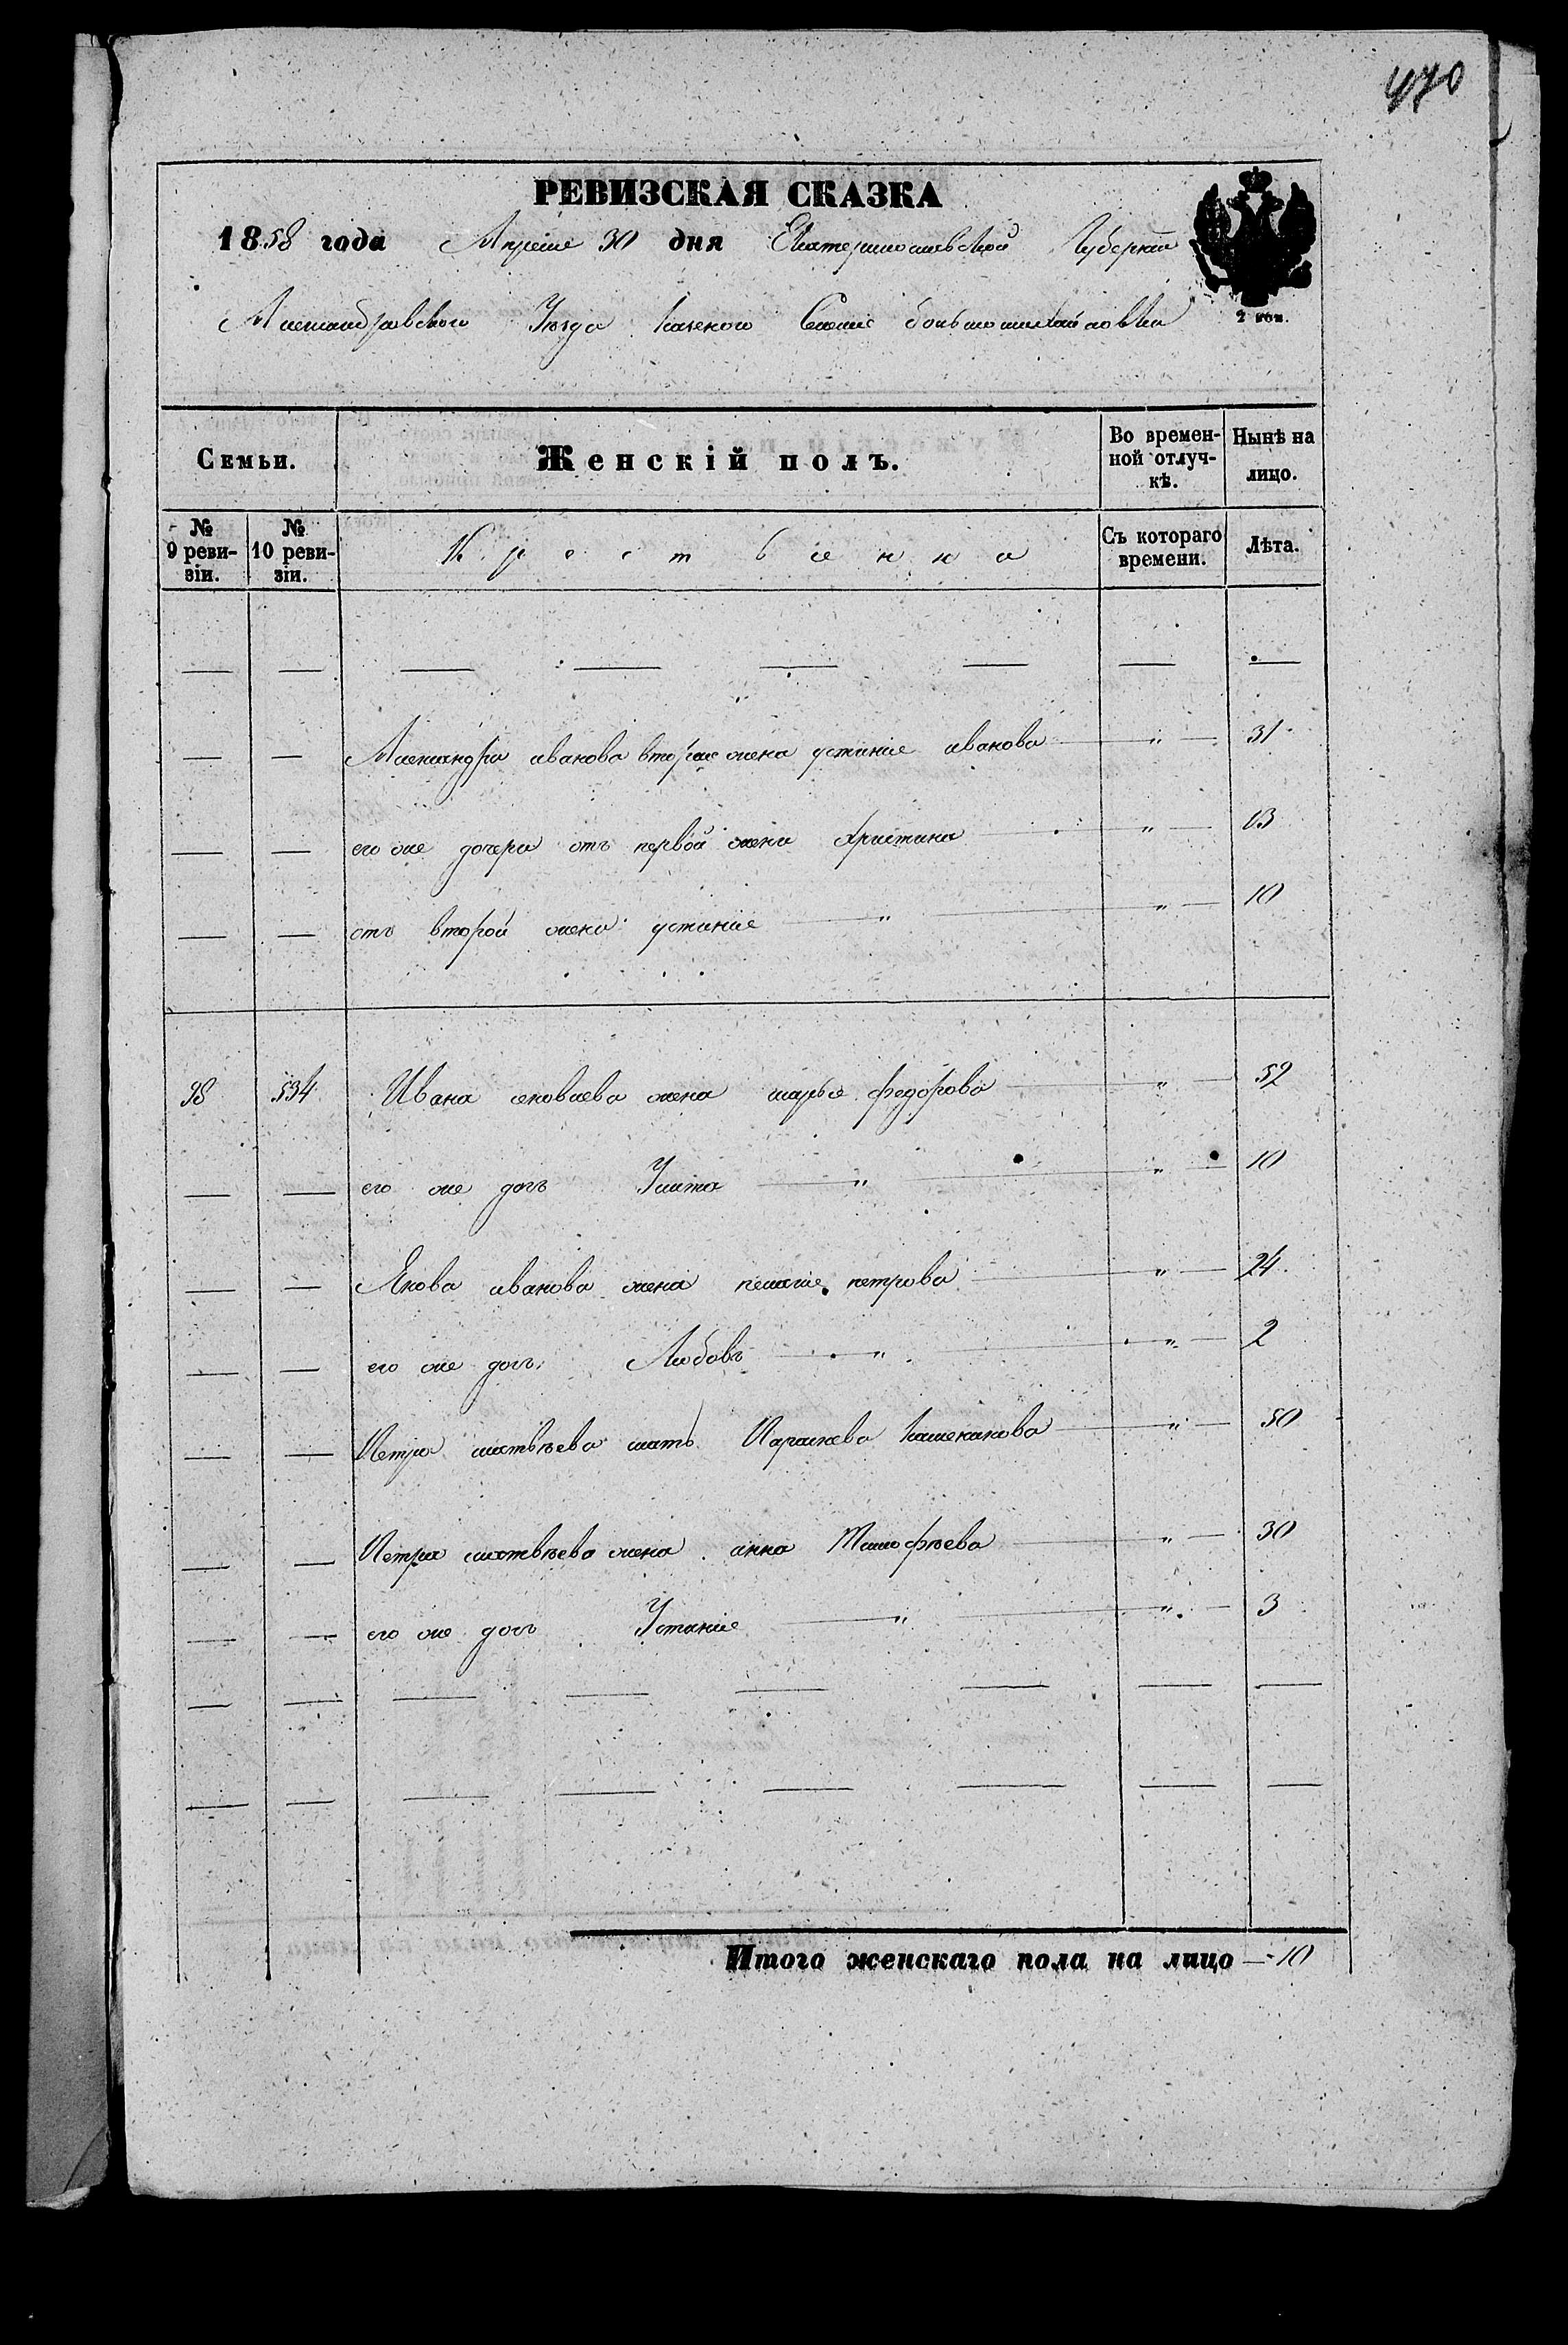 470
РЕВИЗСКАЯ СКАЗКА
1858 года Апреля 30 дня Екатеринославской Губернии
Александравского Уезда казеного Селения большомихайловки
2 коп.
Семьи.
Женскій полъ.
Во времен-
ной отлуч-
кѣ.
Нынѣ на
лицо.
№
9 реви-
зіи.
№
10 реви-
зіи.
Съ котораго
времени.
Лѣта.
— — — — — — — —
— — Александра иванова вторая жена устиния иванова — " — 31
— — его же дочери отъ первой жены христина — " — 13
— — отъ второй жены устиния — " — " — 10
98 534 Ивана яковлева жена марья федорова — " — 52
— — его же дочь Улита — " — " — 10
— — Якова иванова жена пелагия петрова — " — 24
— — его же дочь Любовь — " — " — 2
— — Петра матвѣева мать Параскева — " — 50
— — Петра матвѣева жена анна Тимофѣева — " — 30
— — его же дочь Устиния — " — " — 3
— — — — — — — —
— — — — — — — —
Итого женскаго пола на лицо — 10